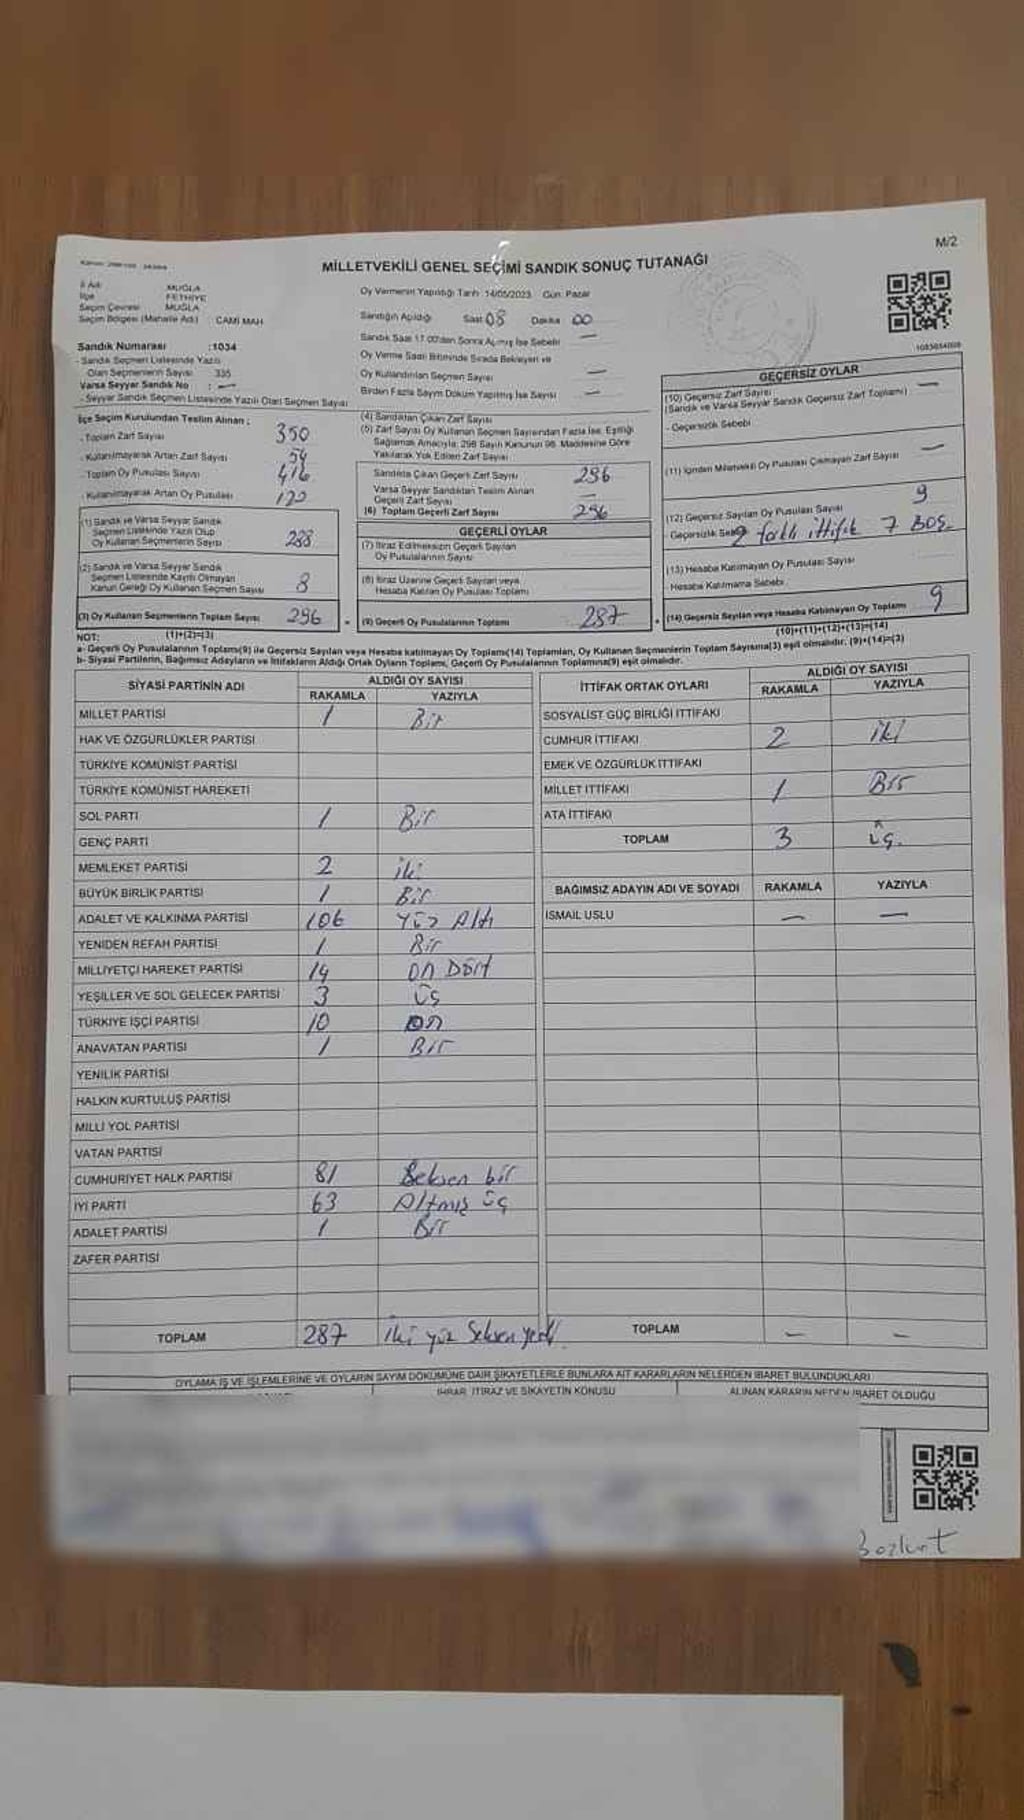 M/2
MİLLETVEKİLİ GENEL SEÇİMİ SANDIK SONUÇ TUTANAĞI
İl Adı MUĞLA
İlçe FETHİYE
Seçim Çevresi MUĞLA
Seçim Bölgesi (Mahalle Adı) CAMİ MAH.
Sandık Numarası :1034
- Sandık Seçmen Listesinde Yazılı
Olan Seçmenlerin Sayısı 335
Varsa Seyyar Sandık No : —
- Seyyar Sandık Seçmen Listesinde Yazılı Olan Seçmen Sayısı
Oy Vermenin Yapıldığı Tarih: 14/05/2023 Gün: Pazar
Sandığın Açıldığı Saat 08 Dakika 00
Sandık Saat 17.00'den Sonra Açılmış İse Sebebi —
Oy Verme Saati Bitiminde Sırada Bekleyen ve
Oy Kullandırılan Seçmen Sayısı —
Birden Fazla Sayım Döküm Yapılmış İse Sayısı —
İlçe Seçim Kurulundan Teslim Alınan ;
- Toplam Zarf Sayısı 350
- Kullanılmayarak Artan Zarf Sayısı 54
- Toplam Oy Pusulası Sayısı 416
- Kullanılmayarak Artan Oy Pusulası 120
(1) Sandık ve Varsa Seyyar Sandık
Seçmen Listesinde Yazılı Olup
Oy Kullanan Seçmenlerin Sayısı 288
(2) Sandık ve Varsa Seyyar Sandık
Seçmen Listesinde Kayıtlı Olmayan
Kanun Gereği Oy Kullanan Seçmen Sayısı 8
(3) Oy Kullanan Seçmenlerin Toplam Sayısı 296
(1)+(2)=(3)
(4) Sandıktan Çıkan Zarf Sayısı
(5) Zarf Sayısı Oy Kullanan Seçmen Sayısından Fazla İse, Eşitliği
Sağlamak Amacıyla; 298 Sayılı Kanunun 98. Maddesine Göre
Yakılarak Yok Edilen Zarf Sayısı
Sandıkta Çıkan Geçerli Zarf Sayısı 296
Varsa Seyyar Sandıktan Teslim Alınan
Geçerli Zarf Sayısı —
(6) Toplam Geçerli Zarf Sayısı 296
GEÇERLİ OYLAR
(7) İtiraz Edilmeksizin Geçerli Sayılan
Oy Pusulalarının Sayısı
(8) İtiraz Üzerine Geçerli Sayılan veya
Hesaba Katılan Oy Pusulası Toplamı
(9) Geçerli Oy Pusulalarının Toplamı 287
GEÇERSİZ OYLAR
(10) Geçersiz Zarf Sayısı —
(Sandık ve Varsa Seyyar Sandık Geçersiz Zarf Toplamı)
- Geçersizlik Sebebi
(11) İçinden Milletvekili Oy Pusulası Çıkmayan Zarf Sayısı —
(12) Geçersiz Sayılan Oy Pusulası Sayısı 9
Geçersizlik Seb 2 farklı ittifak 7 Boş.
(13) Hesaba Katılmayan Oy Pusulası Sayısı
- Hesaba Katılmama Sebebi
(14) Geçersiz Sayılan veya Hesaba Katılmayan Oy Toplamı 9
(10)+(11)+(12)+(13)=(14)
NOT:
a- Geçerli Oy Pusulalarının Toplamı(9) ile Geçersiz Sayılan veya Hesaba katılmayan Oy Toplamı(14) Toplamları, Oy Kullanan Seçmenlerin Toplam Sayısına(3) eşit olmalıdır. (9)+(14)=(3)
b- Siyasi Partilerin, Bağımsız Adayların ve İttifakların Aldığı Ortak Oyların Toplamı, Geçerli Oy Pusulalarının Toplamına(9) eşit olmalıdır.
SİYASİ PARTİNİN ADI ALDIĞI OY SAYISI
RAKAMLA YAZIYLA
MİLLET PARTİSİ 1 Bir
HAK VE ÖZGÜRLÜKLER PARTİSİ
TÜRKİYE KOMÜNİST PARTİSİ
TÜRKİYE KOMÜNİST HAREKETİ
SOL PARTİ 1 Bir
GENÇ PARTİ
MEMLEKET PARTİSİ 2 iki
BÜYÜK BİRLİK PARTİSİ 1 Bir
ADALET VE KALKINMA PARTİSİ 106 Yüz Altı
YENİDEN REFAH PARTİSİ 1 Bir
MİLLİYETÇİ HAREKET PARTİSİ 14 on Dört
YEŞİLLER VE SOL GELECEK PARTİSİ 3 üç
TÜRKİYE İŞÇİ PARTİSİ 10 on
ANAVATAN PARTİSİ 1 Bir
YENİLİK PARTİSİ
HALKIN KURTULUŞ PARTİSİ
MİLLİ YOL PARTİSİ
VATAN PARTİSİ
CUMHURİYET HALK PARTİSİ 81 Seksen bir
İYİ PARTİ 63 Altmış üç
ADALET PARTİSİ 1 Bir
ZAFER PARTİSİ
TOPLAM 287 iki yüz Seksen yedi.
İTTİFAK ORTAK OYLARI ALDIĞI OY SAYISI
RAKAMLA YAZIYLA
SOSYALİST GÜÇ BİRLİĞİ İTTİFAKI
CUMHUR İTTİFAKI 2 iki
EMEK VE ÖZGÜRLÜK İTTİFAKI
MİLLET İTTİFAKI 1 Bir
ATA İTTİFAKI
TOPLAM 3 üç.
BAĞIMSIZ ADAYIN ADI VE SOYADI RAKAMLA YAZIYLA
İSMAİL USLU — —
TOPLAM — —
OYLAMA İŞ VE İŞLEMLERİNE VE OYLARIN SAYIM DÖKÜMÜNE DAİR ŞİKAYETLERLE BUNLARA AİT KARARLARIN NELERDEN İBARET BULUNDUKLARI
İHBAR, İTİRAZ VE ŞİKAYETİN KONUSU ALINAN KARARIN NEDEN İBARET OLDUĞU
Bozkurt